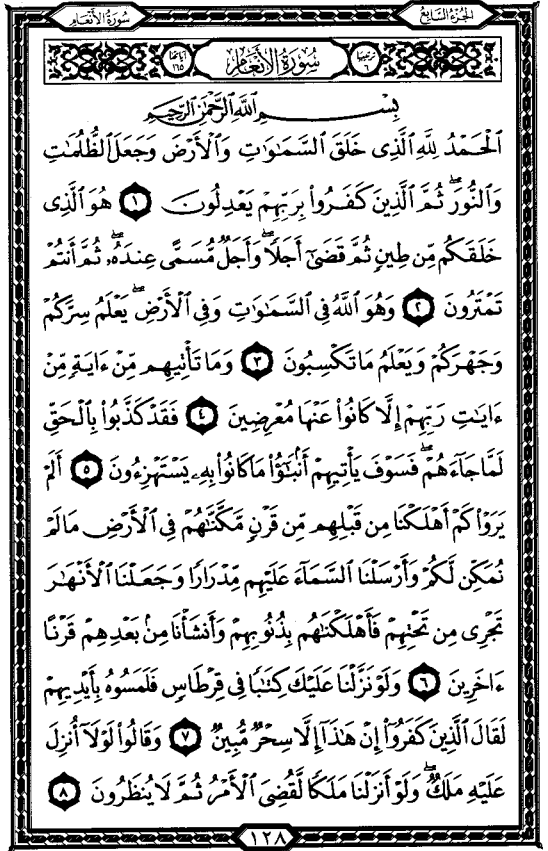 الجزء السابع
سورة الأنعام
ترتيبها ٦
سُورَةُ الأنْعَام
آياتها ١٦٥
بِسْمِ اللَّهِ الرَّحْمَٰنِ الرَّحِيمِ
ٱلْحَمْدُ لِلَّهِ ٱلَّذِى خَلَقَ ٱلسَّمَٰوَٰتِ وَٱلْأَرْضَ وَجَعَلَ ٱلظُّلُمَٰتِ
وَٱلنُّورَ ۖ ثُمَّ ٱلَّذِينَ كَفَرُوا۟ بِرَبِّهِمْ يَعْدِلُونَ ١ هُوَ ٱلَّذِى
خَلَقَكُم مِّن طِينٍ ثُمَّ قَضَىٰٓ أَجَلًا ۖ وَأَجَلٌ مُّسَمًّى عِندَهُۥ ۖ ثُمَّ أَنتُمْ
تَمْتَرُونَ ٢ وَهُوَ ٱللَّهُ فِى ٱلسَّمَٰوَٰتِ وَفِى ٱلْأَرْضِ ۖ يَعْلَمُ سِرَّكُمْ
وَجَهْرَكُمْ وَيَعْلَمُ مَا تَكْسِبُونَ ٣ وَمَا تَأْتِيهِم مِّنْ ءَايَةٍ مِّنْ
ءَايَٰتِ رَبِّهِمْ إِلَّا كَانُوا۟ عَنْهَا مُعْرِضِينَ ٤ فَقَدْ كَذَّبُوا۟ بِٱلْحَقِّ
لَمَّا جَآءَهُمْ ۖ فَسَوْفَ يَأْتِيهِمْ أَنۢبَٰٓؤُا۟ مَا كَانُوا۟ بِهِۦ يَسْتَهْزِءُونَ ٥ أَلَمْ
يَرَوْا۟ كَمْ أَهْلَكْنَا مِن قَبْلِهِم مِّن قَرْنٍ مَّكَّنَّٰهُمْ فِى ٱلْأَرْضِ مَا لَمْ
نُمَكِّن لَّكُمْ وَأَرْسَلْنَا ٱلسَّمَآءَ عَلَيْهِم مِّدْرَارًا وَجَعَلْنَا ٱلْأَنْهَٰرَ
تَجْرِى مِن تَحْتِهِمْ فَأَهْلَكْنَٰهُم بِذُنُوبِهِمْ وَأَنشَأْنَا مِنۢ بَعْدِهِمْ قَرْنًا
ءَاخَرِينَ ٦ وَلَوْ نَزَّلْنَا عَلَيْكَ كِتَٰبًا فِى قِرْطَاسٍ فَلَمَسُوهُ بِأَيْدِيهِمْ
لَقَالَ ٱلَّذِينَ كَفَرُوٓا۟ إِنْ هَٰذَآ إِلَّا سِحْرٌ مُّبِينٌ ٧ وَقَالُوا۟ لَوْلَآ أُنزِلَ
عَلَيْهِ مَلَكٌ ۖ وَلَوْ أَنزَلْنَا مَلَكًا لَّقُضِىَ ٱلْأَمْرُ ثُمَّ لَا يُنظَرُونَ ٨
١٢٨